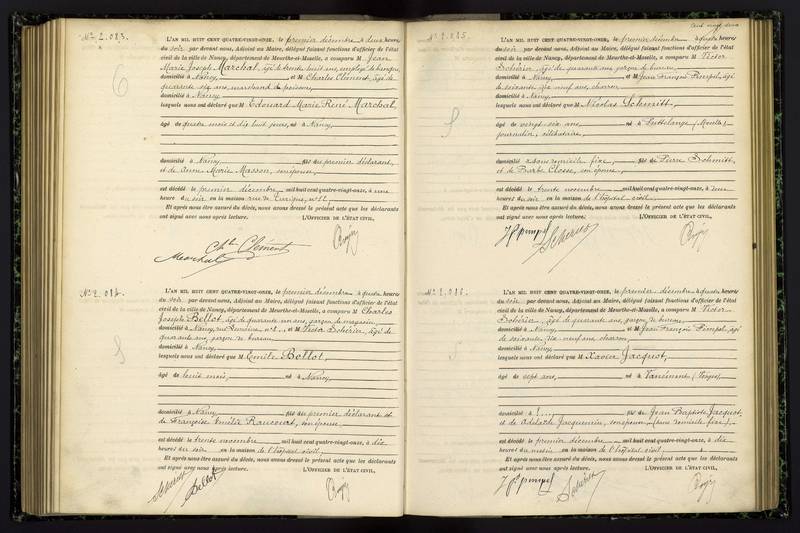 N° 2.083.
L'AN MIL HUIT CENT QUATRE-VINGT-ONZE, le premier décembre à deux heures
du soir par devant nous, Adjoint au Maire, délégué faisant fonctions d'officier de l'état
civil de la ville de Nancy, département de Meurthe-et-Moselle, a comparu M Jean
Marie Joseph Marchal, âgé de trente huit ans, employé de
domicilié à Nancy et M Charles Clément, âgé de
quarante six ans, marchand de poissons,
domicilié à Nancy
lesquels nous ont déclaré que M Edouard Marie René Marchal,
âgé de quatre mois et dix huit jours, né à Nancy,
domicilié à Nancy fils du premier déclarant,
et de Anne Marie Masson, son épouse,
est décédé le premier décembre mil huit cent quatre-vingt-onze, à une
heure du soir en la maison rue de n° 12
Et après nous être assuré du décès, nous avons dressé le présent acte que les déclarants
ont signé avec nous après lecture. L'OFFICIER DE L'ÉTAT CIVIL,
Ch. Clément
Marchal
N° 2.084.
L'AN MIL HUIT CENT QUATRE-VINGT-ONZE, le premier décembre à quatre heures
du soir par devant nous, Adjoint au Maire, délégué faisant fonctions d'officier de l'état
civil de la ville de Nancy, département de Meurthe-et-Moselle, a comparu M Charles
Joseph Bellot, âgé de quarante un ans, garçon de magasin,
domicilié à Nancy, rue et M Victor Schérier, âgé de
quarante ans, garçon de bureau
domicilié à Nancy
lesquels nous ont déclaré que M Emile Bellot,
âgé de mois, né à Nancy,
domicilié à Nancy fils du premier déclarant et
de Françoise Emélie Raucourt, son épouse
est décédé le trente novembre mil huit cent quatre-vingt-onze, à dix
heures du soir en la maison de l'hôpital civil
Et après nous être assuré du décès, nous avons dressé le présent acte que les déclarants
ont signé avec nous après lecture. L'OFFICIER DE L'ÉTAT CIVIL,
Bellot
cent vingt deux
N° 2.085.
L'AN MIL HUIT CENT QUATRE-VINGT-ONZE, le premier décembre à quatre heures
du soir par devant nous, Adjoint au Maire, délégué faisant fonctions d'officier de l'état
civil de la ville de Nancy, département de Meurthe-et-Moselle, a comparu M Victor
Schérier, âgé de quarante ans, garçon de bureau,
domicilié à Nancy, et M Jean François Pimpel, âgé
de soixante dix neuf ans, charron
domicilié à Nancy,
lesquels nous ont déclaré que M Nicolas Schmitt,
âgé de vingt six ans né à Puttelange (Moselle)
journalier, célibataire,
domicilié à sans domicile fixe, fils de Pierre Schmitt,
et de Barbe Closse, son épouse
est décédé le trente novembre mil huit cent quatre-vingt-onze, à
heure du soir en la maison de l'hôpital civil
Et après nous être assuré du décès, nous avons dressé le présent acte que les déclarants
ont signé avec nous après lecture. L'OFFICIER DE L'ÉTAT CIVIL,
N° 2.086.
L'AN MIL HUIT CENT QUATRE-VINGT-ONZE, le premier décembre à quatre heures
du soir par devant nous, Adjoint au Maire, délégué faisant fonctions d'officier de l'état
civil de la ville de Nancy, département de Meurthe-et-Moselle, a comparu M Victor
Schérier, âgé de quarante ans, garçon de bureau
domicilié à Nancy, et M Jean François Pimpel, âgé
de soixante dix neuf ans, charron,
domicilié à Nancy,
lesquels nous ont déclaré que M Xavier Jacquot,
âgé de sept ans, né à (Vosges)
domicilié à fils de Jean Baptiste Jacquot,
et de Adélaïde Jacquemin, son épouse (sans domicile fixe),
est décédé le premier décembre mil huit cent quatre-vingt-onze, à dix
heures du matin en la maison de l'hôpital civil
Et après nous être assuré du décès, nous avons dressé le présent acte que les déclarants
ont signé avec nous après lecture. L'OFFICIER DE L'ÉTAT CIVIL,